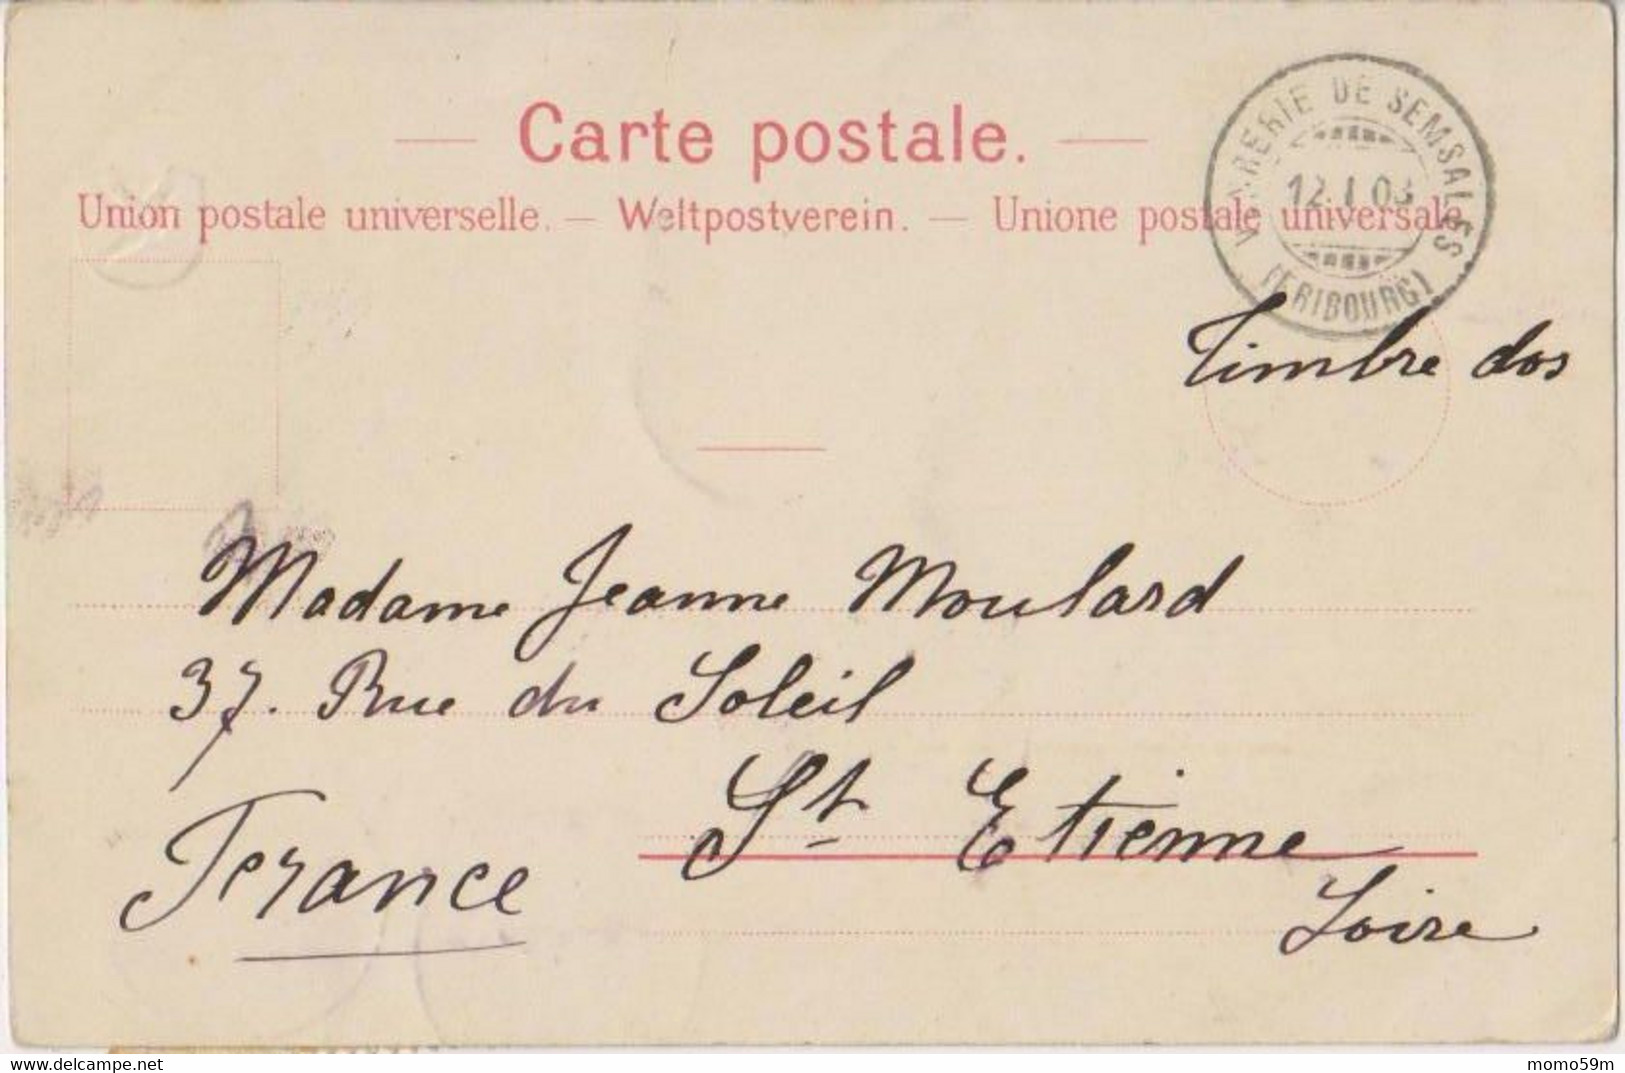 Carte postale.
Union postale universelle. — Weltpostverein. — Unione postale universale.
VERRERIE DE SEMSALES
12.I.03
(FRIBOURG)
Timbre dos
Madame Jeanne Moulard
37. Rue du Soleil
St Etienne
Loire
France
delcampe.net
momo59m